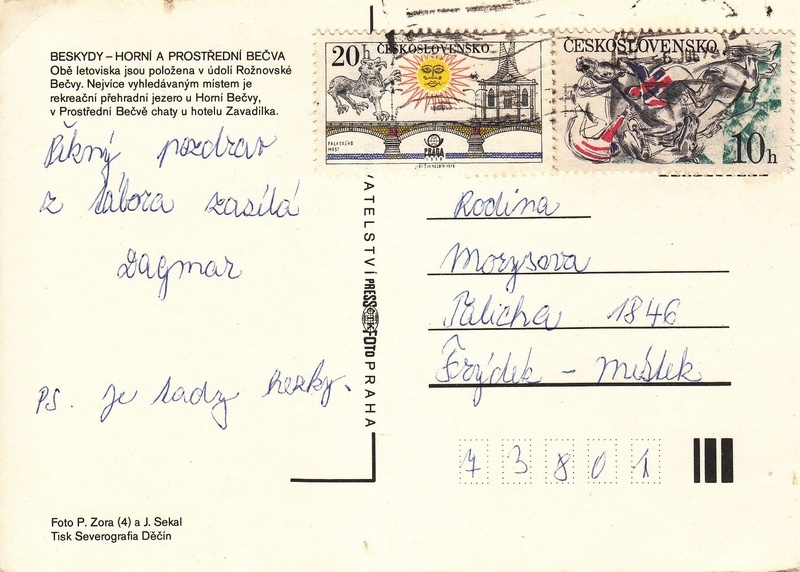 BESKYDY – HORNÍ A PROSTŘEDNÍ BEČVA
Obě letoviska jsou položena v údolí Rožnovské
Bečvy. Nejvíce vyhledávaným místem je
rekreační přehradní jezero u Horní Bečvy,
v Prostřední Bečvě chaty u hotelu Zavadilka.
Pěkný pozdrav
z tábora zasílá
Dagmar
PS. je tady hezky.
Foto P. Zora (4) a J. Sekal
Tisk Severografia Děčín
VATELSTVÍ PRESSFOTO PRAHA
20h ČESKOSLOVENSKO
PALACKÉHO
MOST
PRAGA
ČESKOSLOVENSKO
10h
Rodina
Morysova
Palicha 1846
Frýdek - Místek
73801